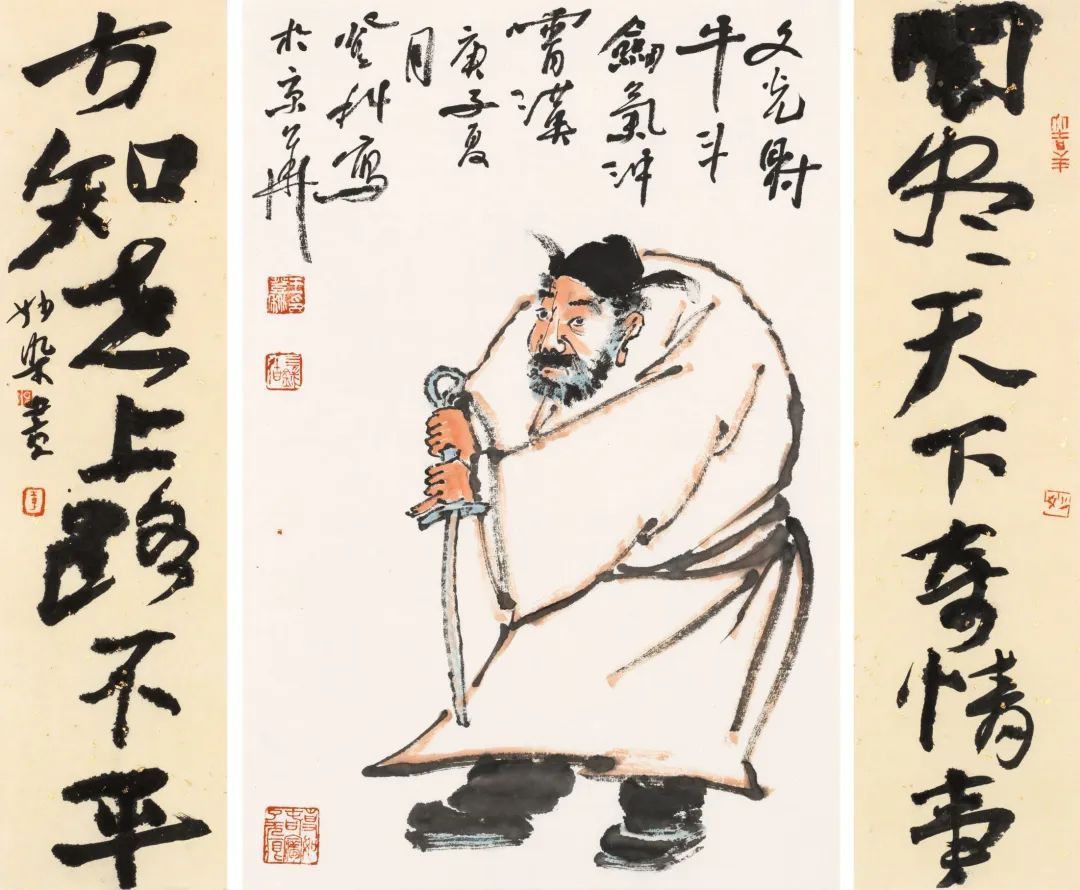 尽天下奇情事
文光射
牛斗
劍氣冲
霄漢
庚子夏
月
登科寫
於京華
方知世上路不平
妙染書